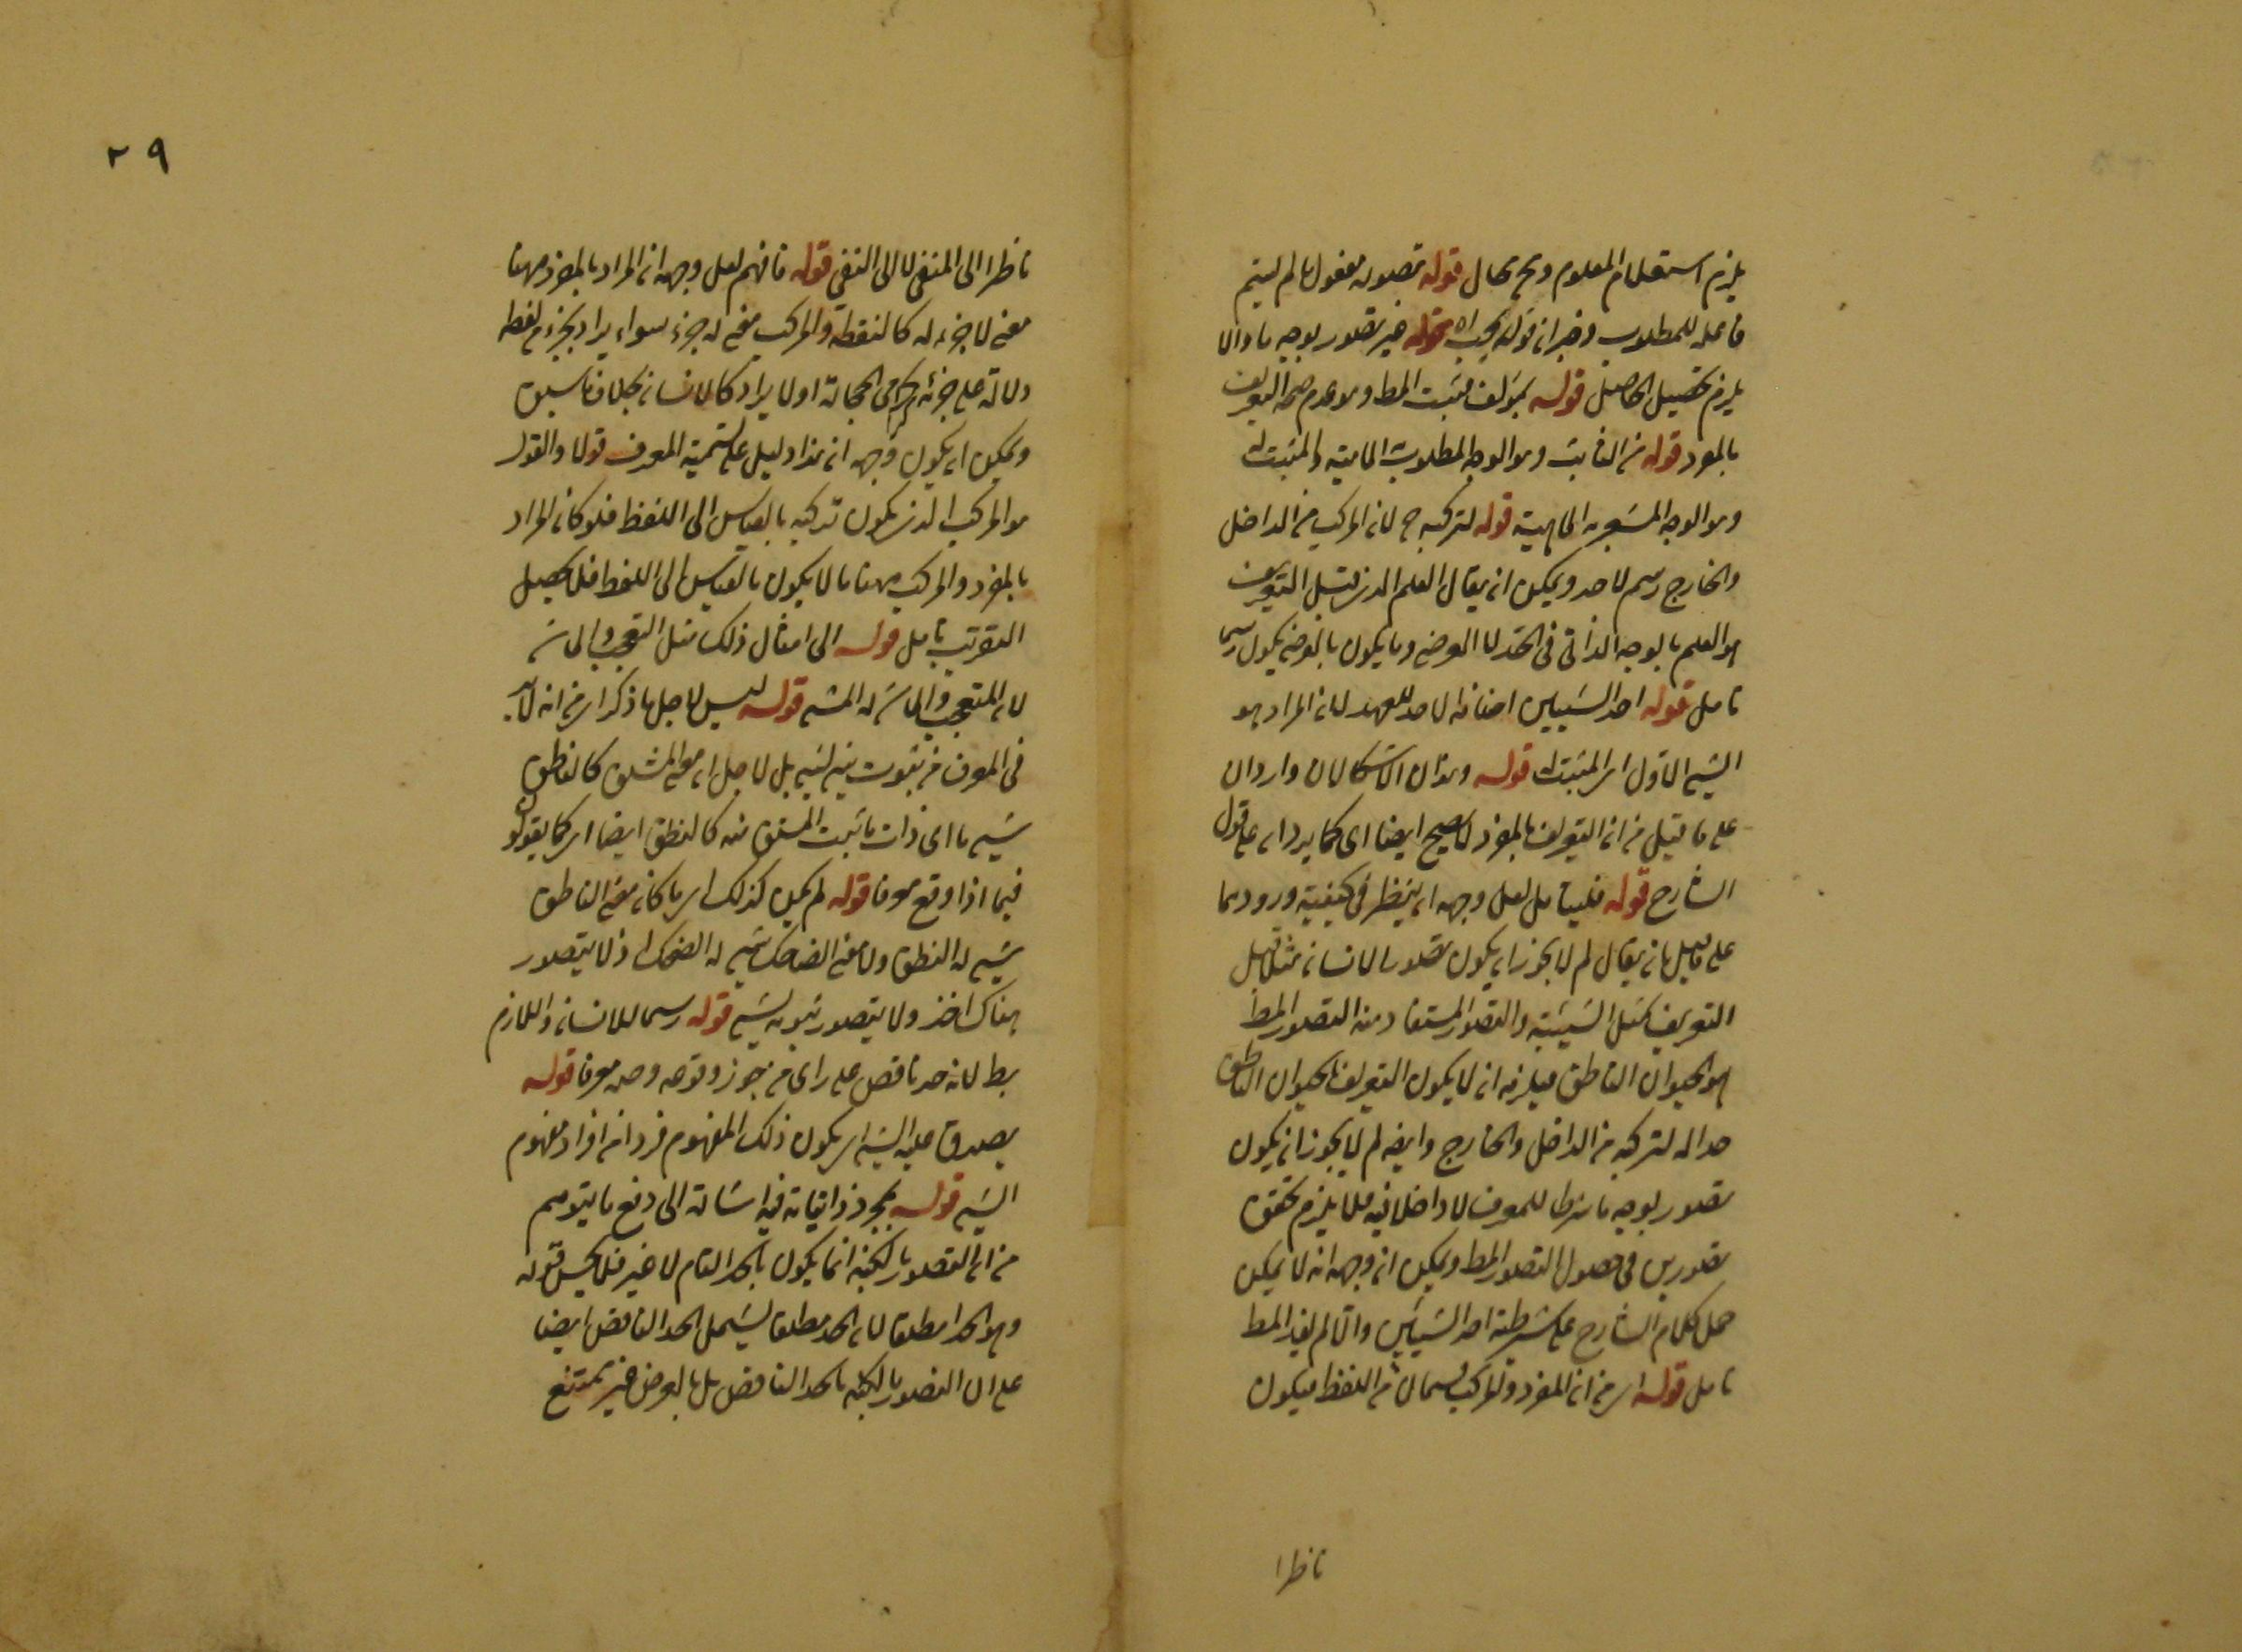 يلزم استعلام المعلوم وهو محال قوله تصوره مفعول ما لم يسم
فاعله للمطلوب وخبر ان قوله يجب اه قوله غير تصور بوجه ما والا
يلزم تحصيل الحاصل قوله بمؤلف مثبت المط وهو عدم صحة التعريف
بالمفرد قوله من الثابت وهو الوجه المطلوب الماهية والمثبت له
وهو الوجه المشعر به الماهية قوله لتركبه ح لان المركب من الداخل
والخارج رسم لا حد ويمكن ان يقال العلم الذى قبل التعريف
هو العلم بالوجه الذاتى فى الحد لا العرضى وما يكون بالعرضى يكون رسما
تامل قوله احد الشيئين اضافة الاحد للعهد لان المراد هو
الشىء الاول اى المثبت له قوله وهذان الاشكالان واردان
على ما قيل من ان التعريف بالمفرد لا يصح ايضا اى كما يردان على قول
الشارح قوله فليتامل لعل وجهه ان ينظر فى كيفية ورودهما
على ما قيل بان يقال لم لا يجوز ان يكون تصور الانسان مثلا قبل
التعريف كمثل الشيئية والتصور المستفاد منه التصور المط
هو الحيوان الناطق فيلزم ان لا يكون التعريف بالحيوان الناطق
حدا له لتركبه من الداخل والخارج وايضا لم لا يجوز ان يكون
تصور بوجه ما شرطا للمعرف لا داخلا فيه فلا يلزم تحقق
تصورين فى حصول التصور المط ويمكن ان وجهه انه لا يمكن
حمل كلام الشارح على شرطية احد الشيئين والا لم يفد المط
تامل قوله اى من ان المفرد والمركب قسمان من اللفظ فيكون
ناظرا
٢٩
ناظرا الى المنفى لا الى النفى قوله فافهم لعل وجهه ان المراد بالمفرد ههنا
معنى لا جزء له كالنقطة والمركب معنى له جزء سواء يراد بجزء لفظه
دلالة على جزئه كرامى الحجارة او لا يراد كالانسان بخلاف ما سبق
ويمكن ان يكون وجهه ان هذا دليل على تسمية المعرف قولا والقول
هو المركب الذى يكون تركبه بالقياس الى اللفظ فلو كان المراد
بالمفرد والمركب ههنا ما لا يكون بالقياس الى اللفظ فلا يحصل
التقريب تامل قوله الى امثال ذلك مثل التعجب والماشى
لان المتعجب والماشى له المشى قوله ليس لاجل ما ذكر اى من انه لا بد
فى المعرف من ثبوت شىء لشىء بل لاجل ان معنى المشتق كالناطق
شىء ما اى ذات ما ثبت المشتق منه كالنطق ايضا اى كما يقولون
فيما اذا وقع معرفا قوله لم يكن كذلك اى ما كان معنى الناطق
شىء له النطق ولا معنى الضاحك شىء له الضحك اذ لا يتصور
هناك اخذ ولا يتصور ثبوته لشىء قوله رسما للانسان واللازم
بط لانه حد ناقص على راى من جوز وقوعه وحده معرفا قوله
يصدق عليه الشىء اى يكون ذلك المفهوم فردا من افراد مفهوم
الشىء قوله بمجرد ذاتياته فيه اشارة الى دفع ما يتوهم
من ان التصور بالكنه انما يكون بالحد التام لا غير فلا يحسن قوله
وهو الحد مطلقا لان الحد مطلقا يشمل الحد الناقص ايضا
على ان التصور بالكنه بالحد الناقص بل بالعرض غير ممتنع